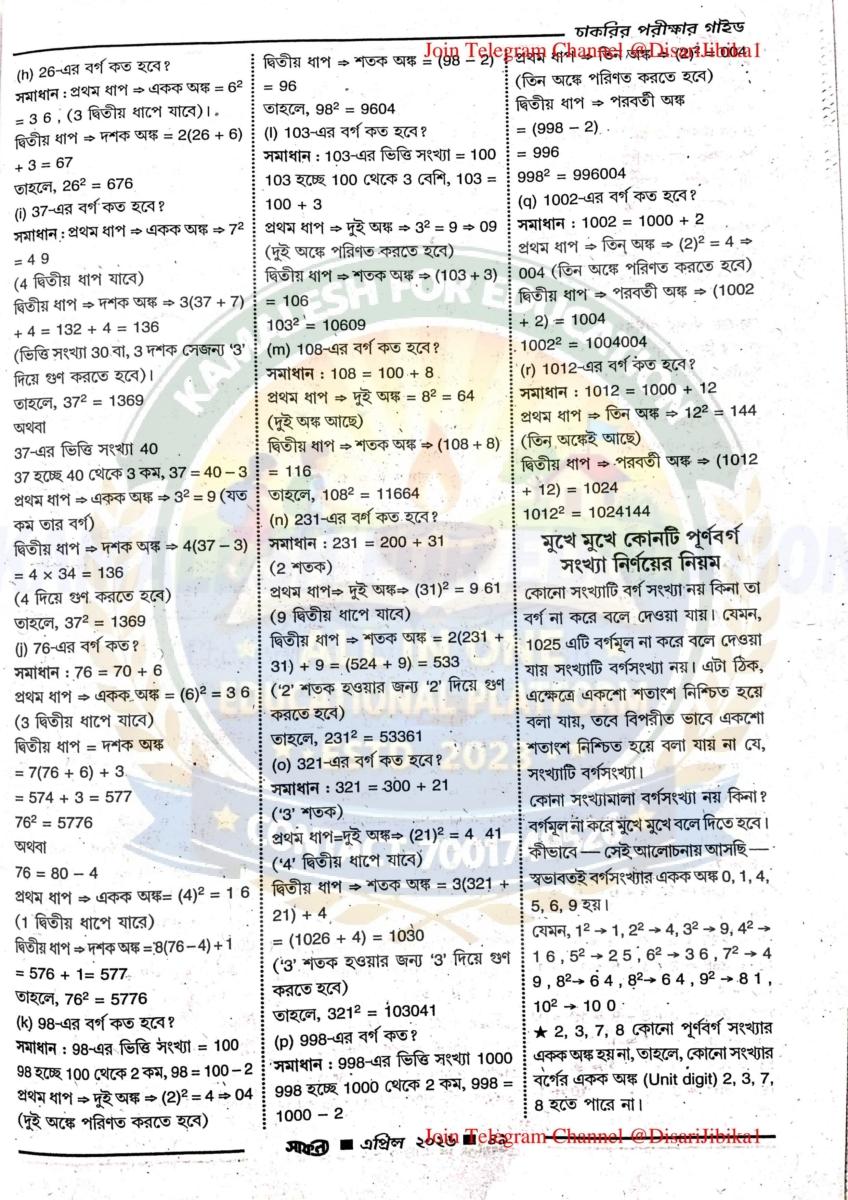 চাকরির পরীক্ষার গাইড
Join Telegram Channel @DisariJibika1
(h) 26-এর বর্গ কত হবে?
সমাধান : প্রথম ধাপ ⇒ একক অঙ্ক = 6²
= 3 6 , (3 দ্বিতীয় ধাপে যাবে)।
দ্বিতীয় ধাপ ⇒ দশক অঙ্ক = 2(26 + 6)
+ 3 = 67
তাহলে, 26² = 676
(i) 37-এর বর্গ কত হবে?
সমাধান : প্রথম ধাপ ⇒ একক অঙ্ক ⇒ 7²
= 4 9
(4 দ্বিতীয় ধাপ যাবে)
দ্বিতীয় ধাপ ⇒ দশক অঙ্ক ⇒ 3(37 + 7)
+ 4 = 132 + 4 = 136
(ভিত্তি সংখ্যা 30 বা, 3 দশক সেজন্য ‘3’
দিয়ে গুণ করতে হবে)।
তাহলে, 37² = 1369
অথবা
37-এর ভিত্তি সংখ্যা 40
37 হচ্ছে 40 থেকে 3 কম, 37 = 40 – 3
প্রথম ধাপ ⇒ একক অঙ্ক ⇒ 3² = 9 (যত
কম তার বর্গ)
দ্বিতীয় ধাপ ⇒ দশক অঙ্ক ⇒ 4(37 – 3)
= 4 × 34 = 136
(4 দিয়ে গুণ করতে হবে)
তাহলে, 37² = 1369
(j) 76-এর বর্গ কত?
সমাধান : 76 = 70 + 6
প্রথম ধাপ ⇒ একক অঙ্ক = (6)² = 3 6
(3 দ্বিতীয় ধাপে যাবে)
দ্বিতীয় ধাপ = দশক অঙ্ক
= 7(76 + 6) + 3
= 574 + 3 = 577
76² = 5776
অথবা
76 = 80 – 4
প্রথম ধাপ ⇒ একক অঙ্ক= (4)² = 1 6
(1 দ্বিতীয় ধাপে যাবে)
দ্বিতীয় ধাপ ⇒ দশক অঙ্ক = 8(76 – 4) + 1
= 576 + 1= 577
তাহলে, 76² = 5776
(k) 98-এর বর্গ কত হবে?
সমাধান : 98-এর ভিত্তি সংখ্যা = 100
98 হচ্ছে 100 থেকে 2 কম, 98 = 100 – 2
প্রথম ধাপ ⇒ দুই অঙ্ক ⇒ (2)² = 4 ⇒ 04
(দুই অঙ্কে পরিণত করতে হবে)
দ্বিতীয় ধাপ ⇒ শতক অঙ্ক = (98 – 2)
= 96
তাহলে, 98² = 9604
(l) 103-এর বর্গ কত হবে?
সমাধান : 103-এর ভিত্তি সংখ্যা = 100
103 হচ্ছে 100 থেকে 3 বেশি, 103 =
100 + 3
প্রথম ধাপ ⇒ দুই অঙ্ক ⇒ 3² = 9 ⇒ 09
(দুই অঙ্কে পরিণত করতে হবে)
দ্বিতীয় ধাপ ⇒ শতক অঙ্ক ⇒ (103 + 3)
= 106
103² = 10609
(m) 108-এর বর্গ কত হবে?
সমাধান : 108 = 100 + 8
প্রথম ধাপ ⇒ দুই অঙ্ক = 8² = 64
(দুই অঙ্ক আছে)
দ্বিতীয় ধাপ ⇒ শতক অঙ্ক ⇒ (108 + 8)
= 116
তাহলে, 108² = 11664
(n) 231-এর বর্গ কত হবে?
সমাধান : 231 = 200 + 31
(2 শতক)
প্রথম ধাপ⇒ দুই অঙ্ক⇒ (31)² = 9 61
(9 দ্বিতীয় ধাপে যাবে)
দ্বিতীয় ধাপ ⇒ শতক অঙ্ক = 2(231 +
31) + 9 = (524 + 9) = 533
(‘2’ শতক হওয়ার জন্য ‘2’ দিয়ে গুণ
করতে হবে)
তাহলে, 231² = 53361
(o) 321-এর বর্গ কত হবে?
সমাধান : 321 = 300 + 21
(‘3’ শতক)
প্রথম ধাপ=দুই অঙ্ক⇒ (21)² = 4 41
(‘4’ দ্বিতীয় ধাপে যাবে)
দ্বিতীয় ধাপ ⇒ শতক অঙ্ক = 3(321 +
21) + 4
= (1026 + 4) = 1030
(‘3’ শতক হওয়ার জন্য ‘3’ দিয়ে গুণ
করতে হবে)
তাহলে, 321² = 103041
(p) 998-এর বর্গ কত?
সমাধান : 998-এর ভিত্তি সংখ্যা 1000
998 হচ্ছে 1000 থেকে 2 কম, 998 =
1000 – 2
প্রথম ধাপ ⇒ তিন অঙ্ক = (2)² = 004
(তিন অঙ্কে পরিণত করতে হবে)
দ্বিতীয় ধাপ ⇒ পরবর্তী অঙ্ক
= (998 – 2)
= 996
998² = 996004
(q) 1002-এর বর্গ কত হবে?
সমাধান : 1002 = 1000 + 2
প্রথম ধাপ ⇒ তিন্ অঙ্ক ⇒ (2)² = 4 ⇒
004 (তিন অঙ্কে পরিণত করতে হবে)
দ্বিতীয় ধাপ ⇒ পরবর্তী অঙ্ক ⇒ (1002
+ 2) = 1004
1002² = 1004004
(r) 1012-এর বর্গ কত হবে?
সমাধান : 1012 = 1000 + 12
প্রথম ধাপ ⇒ তিন অঙ্ক ⇒ 12² = 144
(তিন অঙ্কেই আছে)
দ্বিতীয় ধাপ ⇒ পরবর্তী অঙ্ক ⇒ (1012
+ 12) = 1024
1012² = 1024144
মুখে মুখে কোনটি পূর্ণবর্গ
সংখ্যা নির্ণয়ের নিয়ম
কোনো সংখ্যাটি বর্গ সংখ্যা নয় কিনা তা
বর্গ না করে বলে দেওয়া যায়। যেমন,
1025 এটি বর্গমূল না করে বলে দেওয়া
যায় সংখ্যাটি বর্গসংখ্যা নয়। এটা ঠিক,
এক্ষেত্রে একশো শতাংশ নিশ্চিত হয়ে
বলা যায়, তবে বিপরীত ভাবে একশো
শতাংশ নিশ্চিত হয়ে বলা যায় না যে,
সংখ্যাটি বর্গসংখ্যা।
কোনা সংখ্যামালা বর্গসংখ্যা নয় কিনা?
বর্গমূল না করে মুখে মুখে বলে দিতে হবে।
কীভাবে — সেই আলোচনায় আসছি —
স্বভাবতই বর্গসংখ্যার একক অঙ্ক 0, 1, 4,
5, 6, 9 হয়।
যেমন, 1² → 1, 2² → 4, 3² → 9, 4² →
1 6 , 5² → 2 5 , 6² → 3 6 , 7² → 4
9 , 8² → 6 4 , 8² → 6 4 , 9² → 8 1 ,
10² → 10 0
★ 2, 3, 7, 8 কোনো পূর্ণবর্গ সংখ্যার
একক অঙ্ক হয় না, তাহলে, কোনো সংখ্যার
বর্গের একক অঙ্ক (Unit digit) 2, 3, 7,
8 হতে পারে না।
KAMALESH FOR EDUCATION
ALL IN ONE
EDUCATIONAL PLATFORM
ESTD 2023
■ এপ্রিল ২০২৬ ■
Join Telegram Channel @DisariJibika1